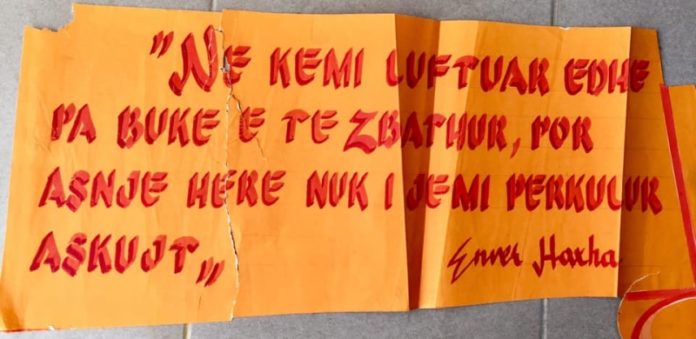 "NE KEMI LUFTUAR EDHE
PA BUKE E TE ZBATHUR, POR
ASNJE HERE NUK I JEMI PERKULUR
ASKUJT„
Enver Hoxha